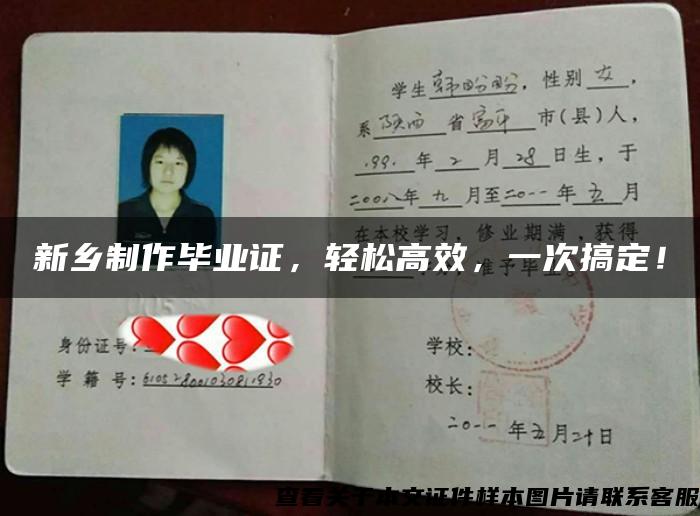 学生韩盼盼，性别女，
系陕西省富平市(县)人，
199.年2月28日生，于
二00八年九月至二0一一年五月
在本校学习，修业期满，获得
准予毕业
新乡制作毕业证，轻松高效，一次搞定！
身份证号：
学籍号：
学校：
校长：
二0一一年五月二十日
查看关于本文证件样本图片请联系客服